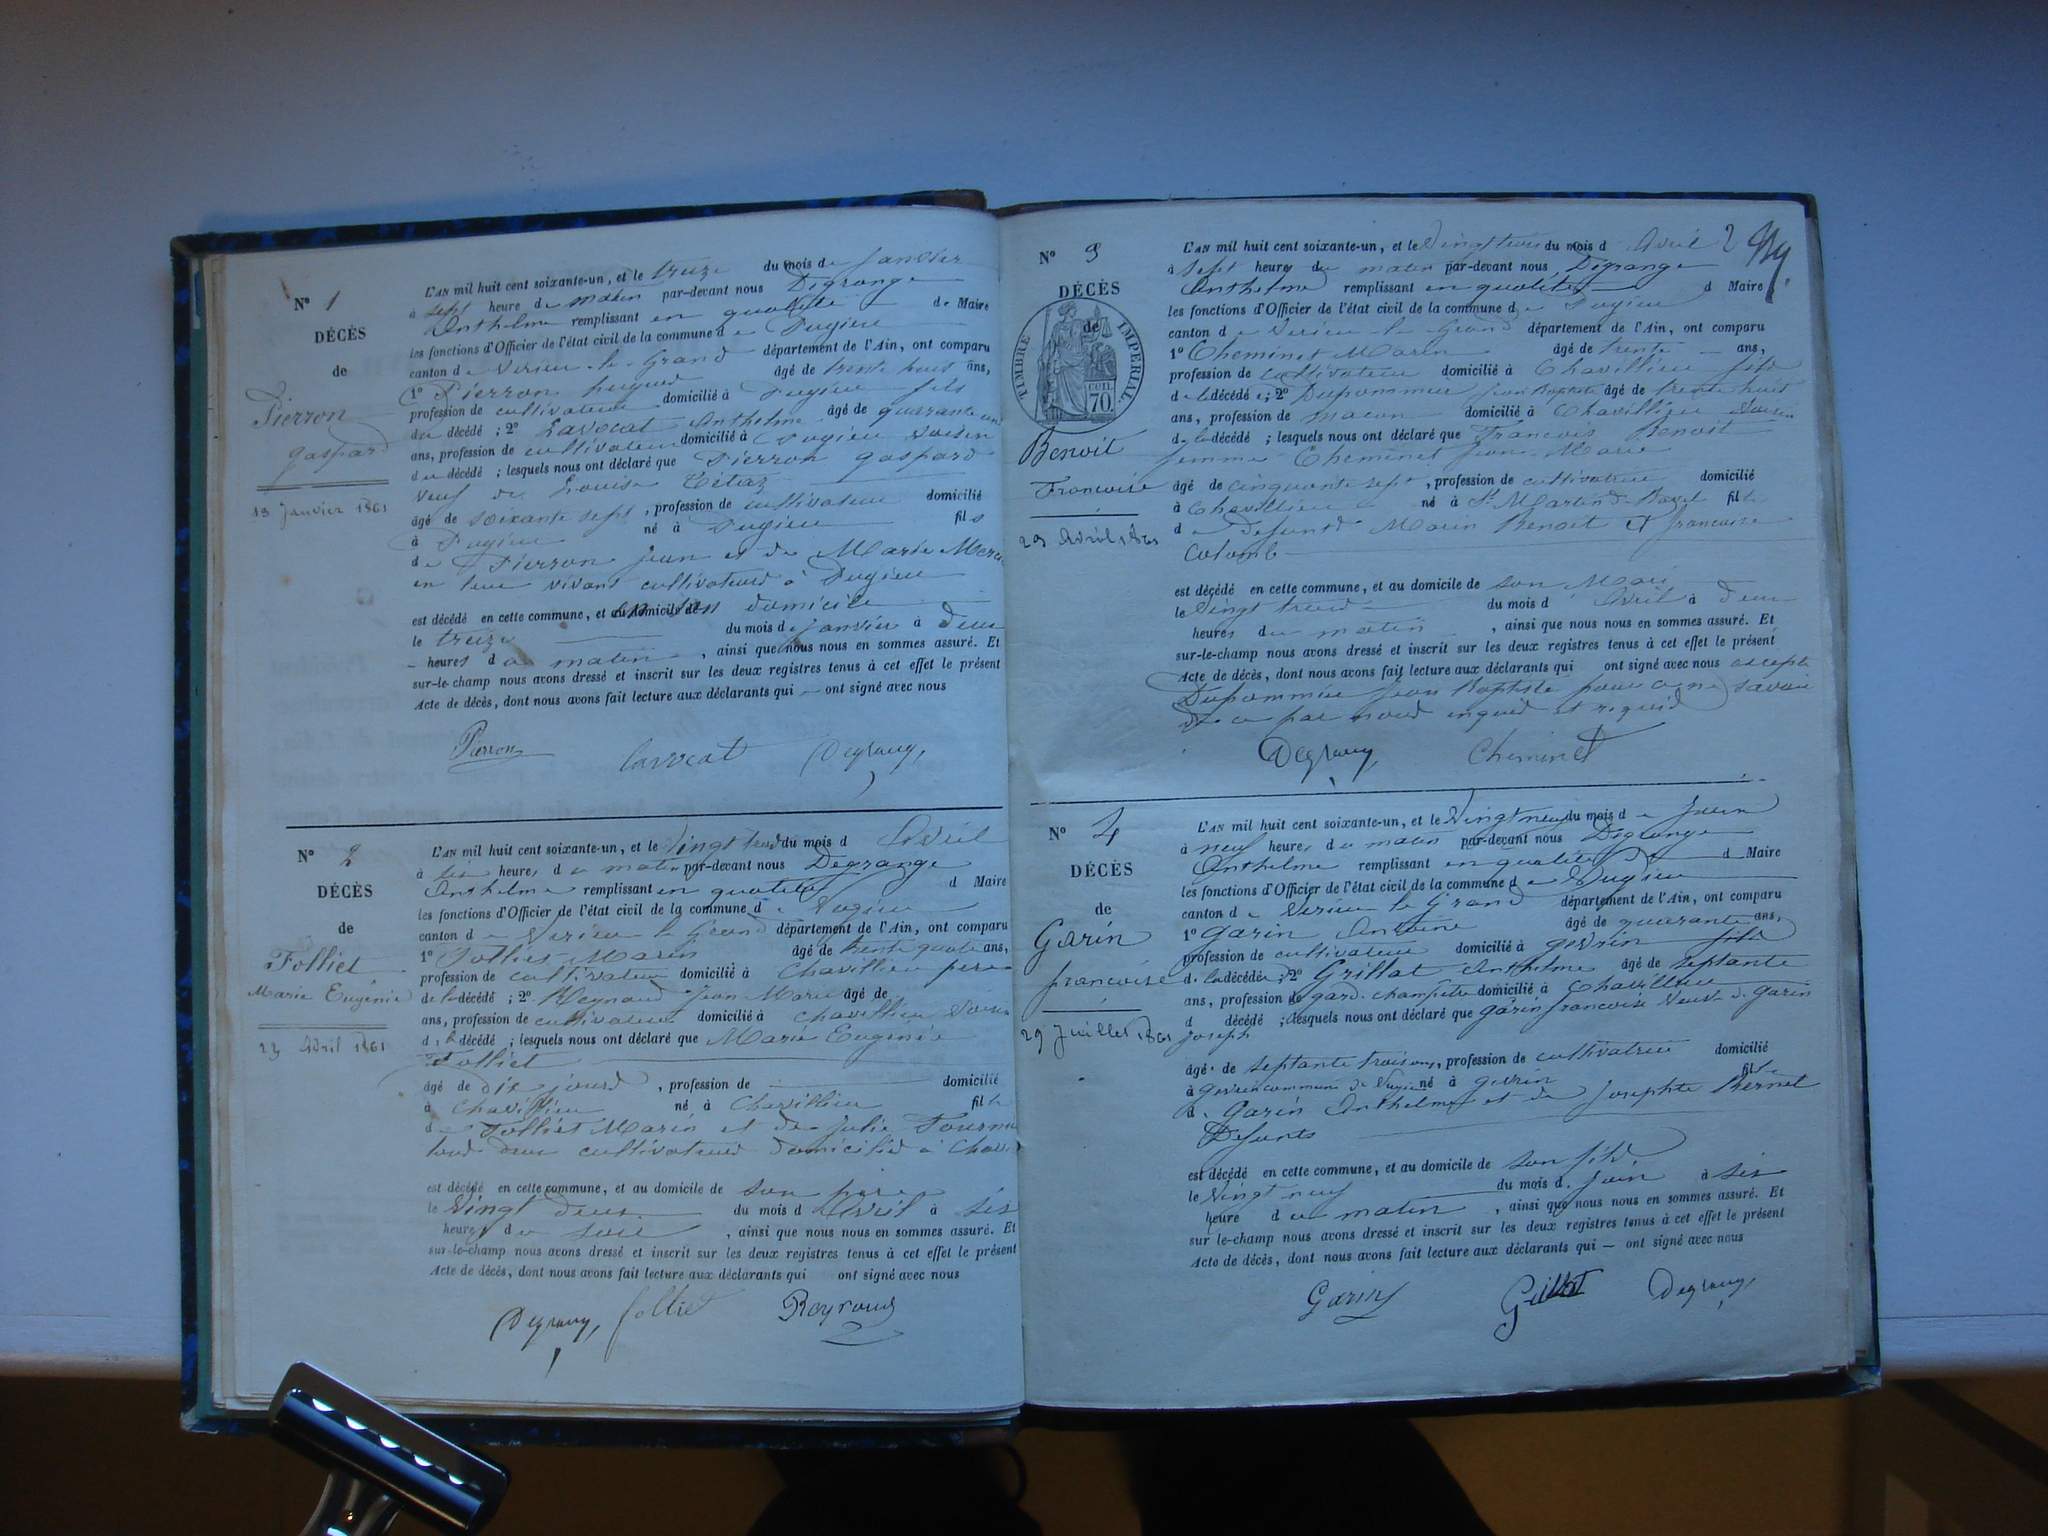 N° 1
DÉCÈS
de
Pierron
gaspard
13 Janvier 1861
L'AN mil huit cent soixante-un, et le treize du mois de Janvier
à sept heure du matin par-devant nous Degrange
Anthelme remplissant en qualité de Maire
les fonctions d'Officier de l'état civil de la commune de Pugieu
canton de Virieu-le-Grand département de l'Ain, ont comparu
1° Pierron hugues âgé de trente huit ans,
profession de cultivateur domicilié à Pugieu fils
du décédé ; 2° Lavocat Anthelme âgé de quarante un
ans, profession de cultivateur domicilié à Pugieu voisin
du décédé ; lesquels nous ont déclaré que Pierron gaspard
veuf de Louise
âgé de soixante sept, profession de cultivateur domicilié
à Pugieu né à Pugieu fils
de Pierron Jean et de Marie
en leur vivant cultivateurs à Pugieu
est décédé en cette commune, et au domicile de en son domicile
le treize du mois de janvier à deux
heures du matin, ainsi que nous nous en sommes assuré. Et
sur-le-champ nous avons dressé et inscrit sur les deux registres tenus à cet effet le présent
Acte de décès, dont nous avons fait lecture aux déclarants qui — ont signé avec nous
Pierron Lavocat Degrange
N° 2
DÉCÈS
de
Folliet
Marie Eugénie
23 Avril 1861
L'AN mil huit cent soixante-un, et le vingt trois du mois d Avril
à six heures du matin par-devant nous Degrange
Anthelme remplissant en qualité d Maire
les fonctions d'Officier de l'état civil de la commune de Pugieu
canton de Virieu le Grand département de l'Ain, ont comparu
1° Folliet Marin âgé de trente quatre ans,
profession de cultivateur domicilié à Chavillieu père
de la décédé ; 2° Reynaud Jean Marie âgé de
ans, profession de cultivateur domicilié à Chavillieu voisin
de la décédé ; lesquels nous ont déclaré que Marie Eugénie
Folliet
âgé de dix jours, profession de domicilié
à Chavillieu né à Chavillieu fille
de Folliet Marin et de Julie
tous deux cultivateurs domiciliés à
est décédé en cette commune, et au domicile de son père
le vingt deux du mois d Avril à six
heures du soir, ainsi que nous nous en sommes assuré. Et
sur-le-champ nous avons dressé et inscrit sur les deux registres tenus à cet effet le présent
Acte de décès, dont nous avons fait lecture aux déclarants qui ont signé avec nous
Degrange, folliet Reynaud
2
N° 3
DÉCÈS
de
TIMBRE IMPERIAL
CEN.
70.
Benoit
Francoise
23 Avril 1861
L'AN mil huit cent soixante-un, et le vingt trois du mois d Avril
à sept heures du matin par-devant nous Degrange
Anthelme remplissant en qualité d Maire
les fonctions d'Officier de l'état civil de la commune de Pugieu
canton de Virieu-le-Grand département de l'Ain, ont comparu
1° Cheminet Marin âgé de trente ans,
profession de cultivateur domicilié à Chavillieu fils
de la décédé e ; 2° Dupommier Jean Baptiste âgé de trente huit
ans, profession de macon domicilié à Chavillieu voisin
de la décédé ; lesquels nous ont déclaré que Francoise Benoit
femme Cheminet Jean-Marie
âgé de cinquante sept, profession de cultivateur domicilié
à Chavillieu né à St Martin-de-Bavel fille
de defunts Marin Benoit et francoise
Colomb
est décédé en cette commune, et au domicile de son Mari
le vingt trois du mois d Avril à deux
heures du matin, ainsi que nous nous en sommes assuré. Et
sur-le-champ nous avons dressé et inscrit sur les deux registres tenus à cet effet le présent
Acte de décès, dont nous avons fait lecture aux déclarants qui ont signé avec nous excepte
Dupommier Jean Baptiste pour ce ne savoir
de ce par nous enquis et requis
Degrange, Cheminet
N° 4
DÉCÈS
de
Garin
francoise
29 Juillet 1861
L'AN mil huit cent soixante-un, et le vingt neuf du mois de Juin
à neuf heures du matin par-devant nous Degrange
Anthelme remplissant en qualité de d Maire
les fonctions d'Officier de l'état civil de la commune de Pugieu
canton de Virieu le Grand département de l'Ain, ont comparu
1° Garin Antoine âgé de quarante ans,
profession de cultivateur domicilié à gevrin fils
de la décédé e ; 2° Grillat Anthelme âgé de septante
ans, profession de gard. champêtre domicilié à Chavillieu
d décédé ; lesquels nous ont déclaré que garin francoise veuve de garin
Joseph
âgé e de septante trois ans, profession de cultivatrice domicilié
à gevrin commune de Pugieu né à gevrin fille
de Garin Anthelme et de Josephte Bernet
Defunts
est décédé en cette commune, et au domicile de son fils
le vingt neuf du mois de Juin à six
heure du matin, ainsi que nous nous en sommes assuré. Et
sur le-champ nous avons dressé et inscrit sur les deux registres tenus à cet effet le présent
Acte de décès, dont nous avons fait lecture aux déclarants qui — ont signé avec nous
Garin Grillat Degrange,